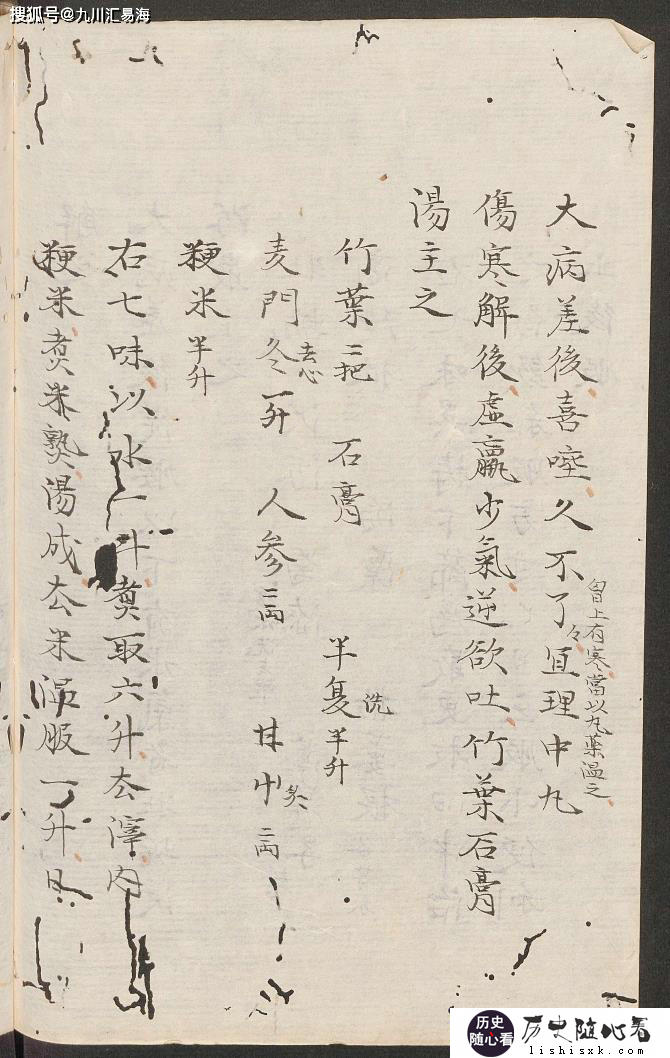 搜狐号@九川汇易海
大病差後喜唾久不了々宜理中丸
胷上有寒當以丸藥温之
傷寒解後虚羸少氣逆欲吐竹葉石膏
湯主之
竹葉二把 石膏 半夏半升洗
麦門冬一升去心 人参二兩 甘艸二兩炙
粳米半升
右七味以水一斗煑取六升去滓内
粳米煑米熟湯成去米温服一升日
历史随心看
历史随心看
lishisxk.com